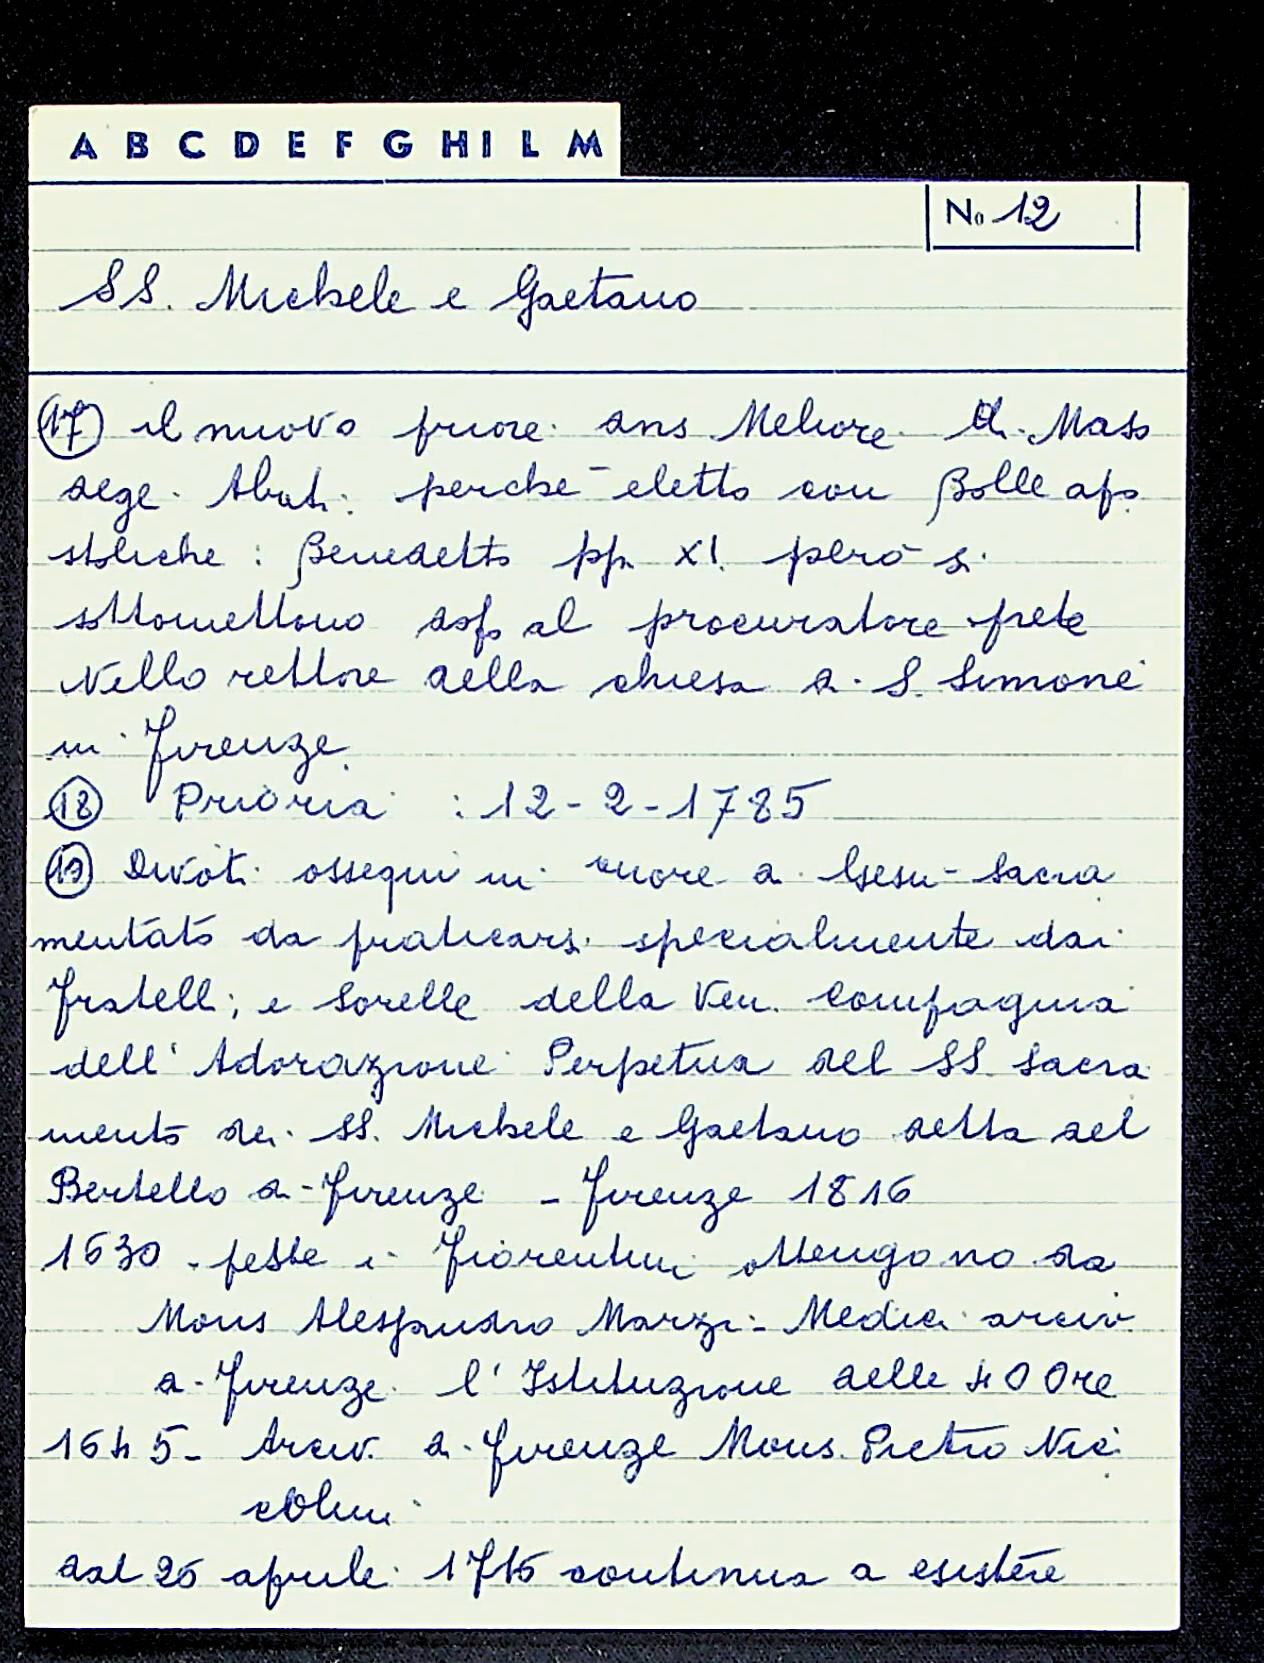 A B C D E F G H I L M
No 12
SS. Michele e Gaetano
17 il nuovo priore dns Meliore di Maso
degl. Abati: perchè eletto con Bolle apo
stoliche: Benedetto pp. XI. però si
sottomettono dopo al procuratore prete
Nello rettore della chiesa di S. Simone
in Firenze
18 Prioria : 12-2-1785
19 Divoti ossequi in cuore a Gesù-Sacra
mentato da praticarsi specialmente dai
fratelli; e Sorelle della Ven. Compagnia
dell'Adorazione Perpetua del SS. Sacra
mento dei SS. Michele e Gaetano detta del
Bertello di Firenze - Firenze 1816
1630 - peste i Fiorentini ottengono da
Mons Alessandro Marzi-Medici arciv.
di Firenze l'Istituzione delle 40 Ore
1645 - Arciv. di Firenze Mons. Pietro Nic
colini
dal 26 aprile continua a esistere